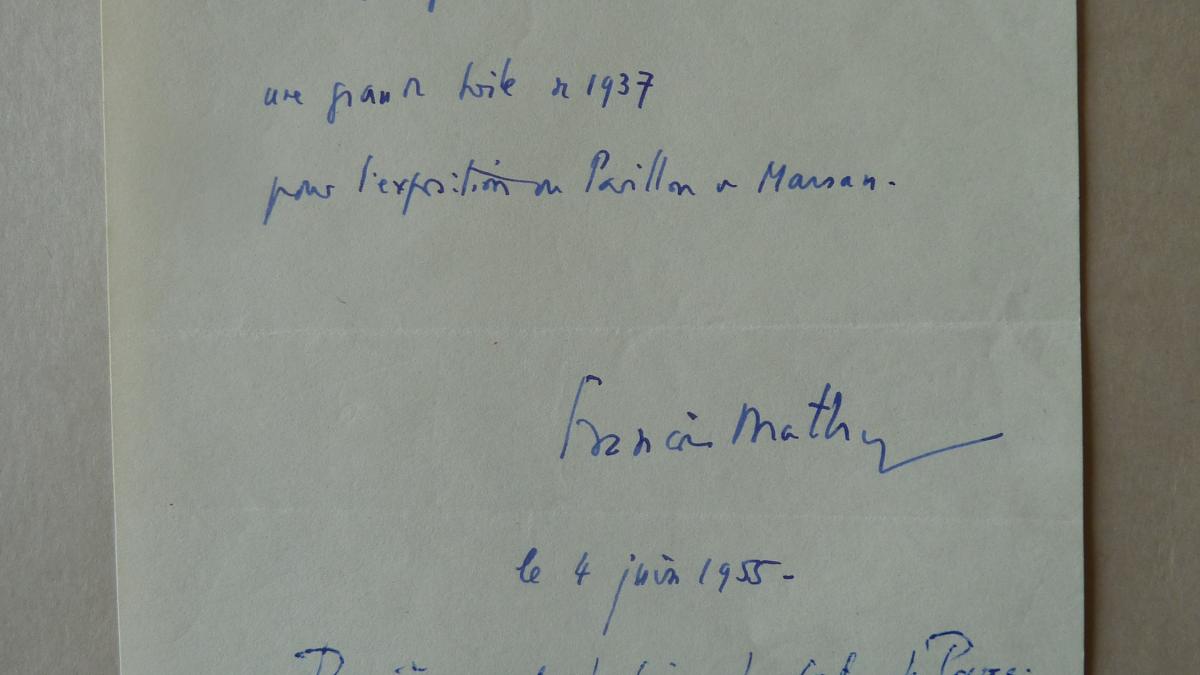 une grande toile de 1937
pour l'exposition du Pavillon de Marsan.
Francis Mathey
le 4 juin 1955-